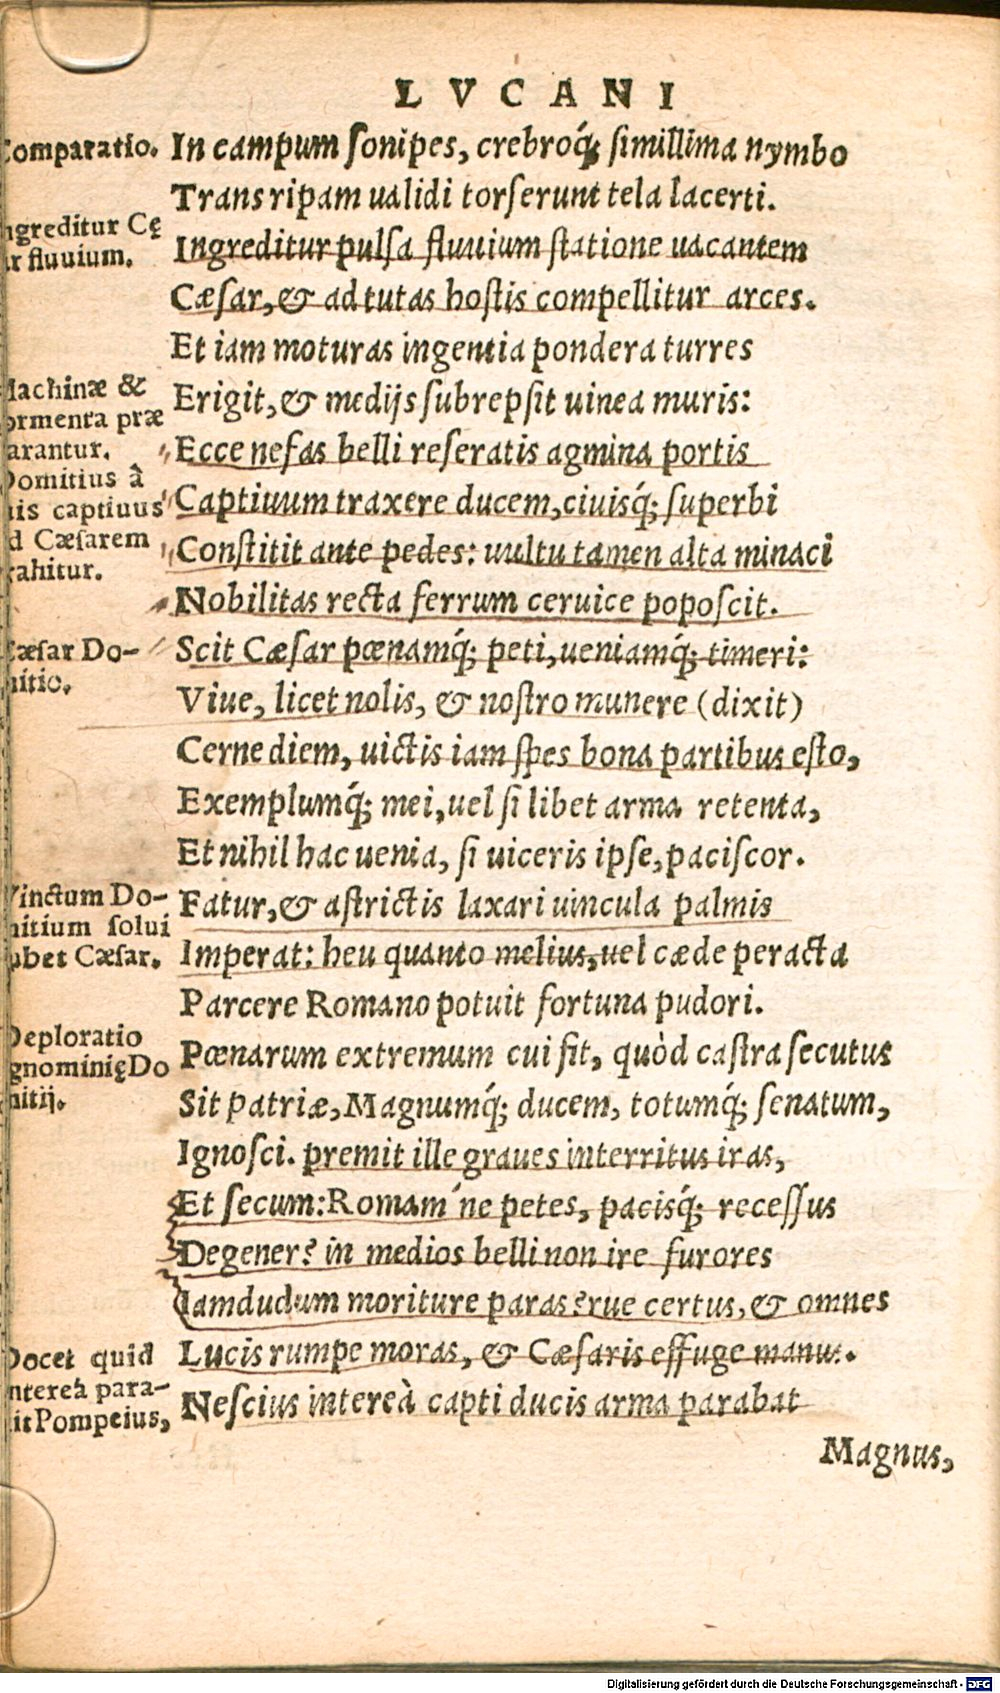 LVCANI
Comparatio.
In campum sonipes, crebroq́; simillima nymbo
Trans ripam ualidi torserunt tela lacerti.
ngreditur Cę
ar fluuium.
Ingreditur pulsa fluuium statione uacantem
Cæsar, & ad tutas hostis compellitur arces.
Et iam moturas ingentia pondera turres
Machinæ &
ormenta præ
arantur.
Erigit, & medijs subrepsit uinea muris:
Ecce nefas belli reseratis agmina portis
Domitius â
uis captiuus
d Cæsarem
rahitur.
Captiuum traxere ducem, ciuisq́; superbi
Constitit ante pedes: uultu tamen alta minaci
Nobilitas recta ferrum ceruice poposcit.
Cæsar Do-
mitio.
Scit Cæsar pœnamq́; peti, ueniamq́; timeri:
Viue, licet nolis, & nostro munere (dixit)
Cerne diem, uictis iam spes bona partibus esto,
Exemplumq́; mei, uel si libet arma retenta,
Et nihil hac uenia, si uiceris ipse, paciscor.
Vinctum Do-
mitium solui
ubet Cæsar.
Fatur, & astrictis laxari uincula palmis
Imperat: heu quanto melius, uel cæde peracta
Parcere Romano potuit fortuna pudori.
Deploratio
gnominię Do
mitij.
Pœnarum extremum cui fit, quòd castra secutus
Sit patriæ, Magnumq́; ducem, totumq́; senatum,
Ignosci. premit ille graues interritus iras,
Et secum: Roman'ne petes, pacisq́; recessus
Degener? in medios belli non ire furores
Iamdudum moriture paras? rue certus, & omnes
Docet quid
ntereà para-
it Pompeius,
Lucis rumpe moras, & Cæsaris effuge manus.
Nescius intereà capti ducis arma parabat
Magnus,
Digitalisierung gefördert durch die Deutsche Forschungsgemeinschaft - DFG